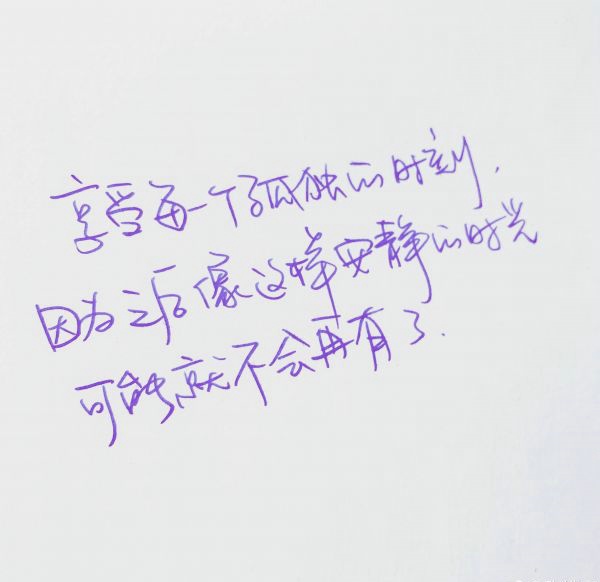 享受每一个孤独的时刻，
因为之后像这样安静的时光
可能就不会再有了.